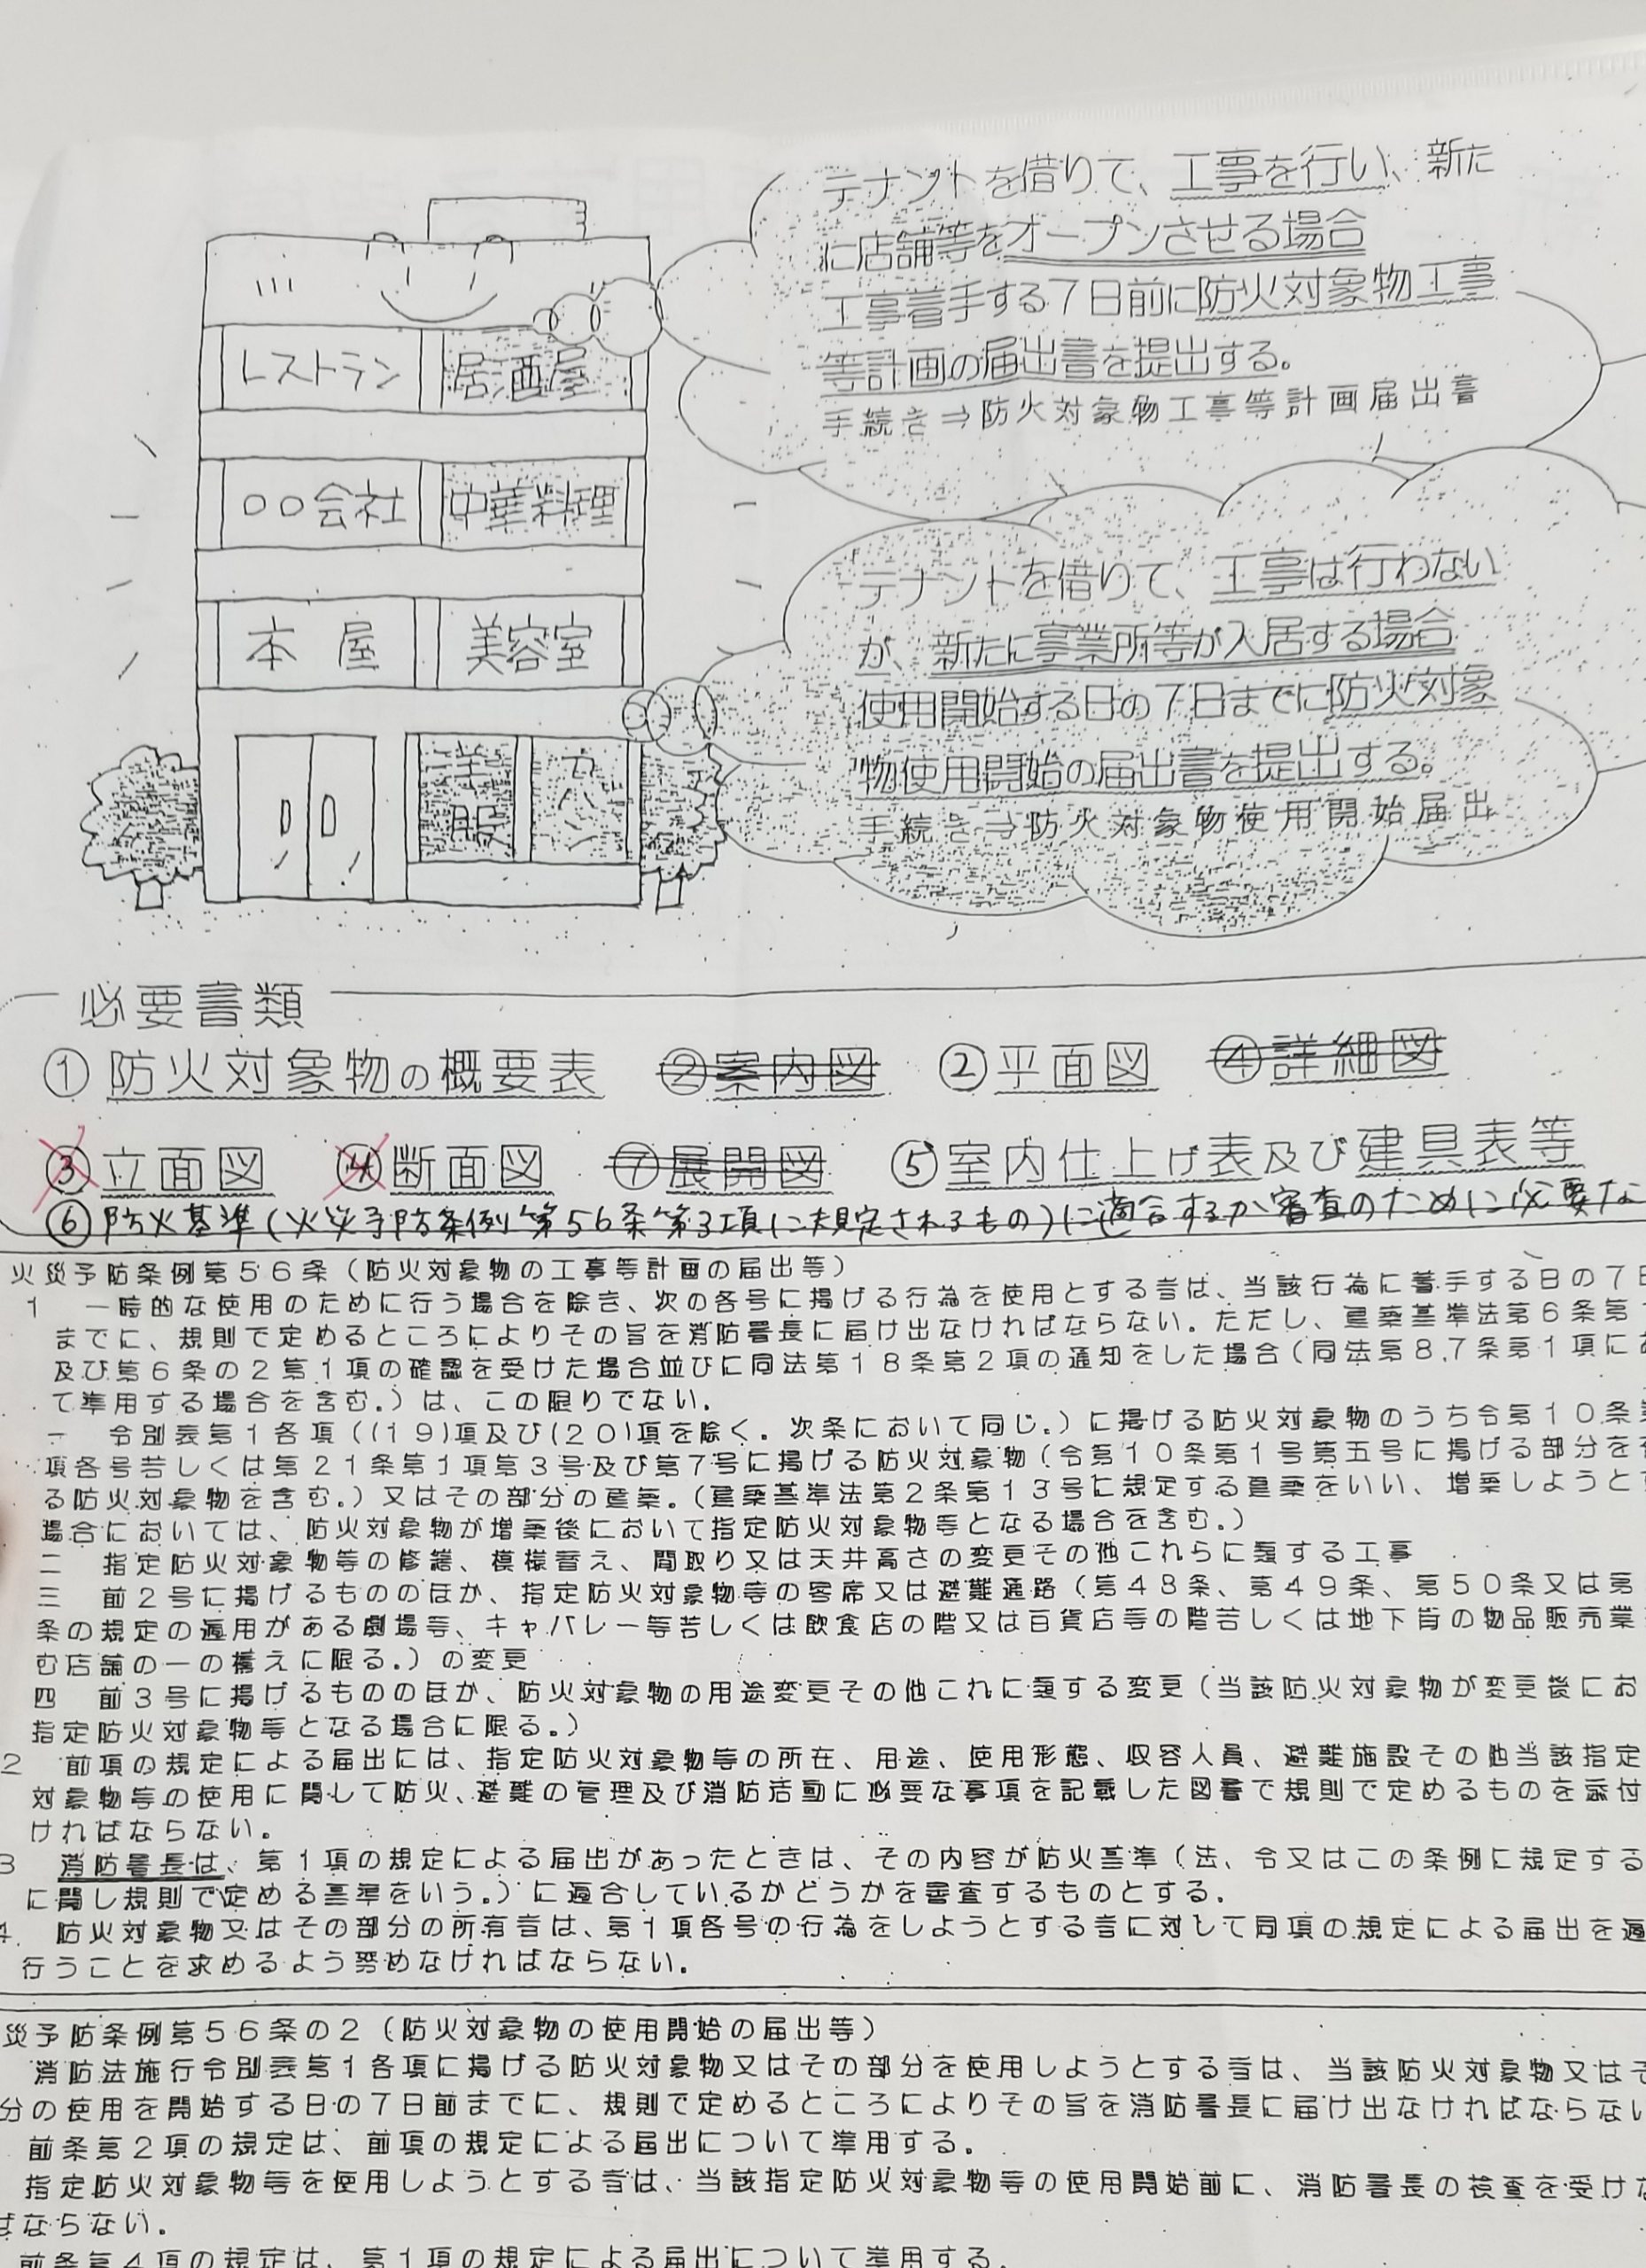 テナントを借りて、工事を行い、新た
に店舗等をオープンさせる場合
工事着手する7日前に防火対象物工事
等計画の届出書を提出する。
手続き⇒防火対象物工事等計画届出書
レストラン 居酒屋
〇〇会社 中華料理
本屋 美容室
洋服
テナントを借りて、工事は行わない
が、新たに事業所等が入居する場合
使用開始する日の7日までに防火対象
物使用開始の届出書を提出する。
手続き⇒防火対象物使用開始届出
必要書類
①防火対象物の概要表 ②案内図 ②平面図 ④詳細図
③立面図 ④断面図 ⑦展開図 ⑤室内仕上げ表及び建具表等
⑥防火基準(火災予防条例第56条第3項に規定されるもの)に適合するか審査のために必要な
火災予防条例第56条(防火対象物の工事等計画の届出等)
1 一時的な使用のために行う場合を除き、次の各号に掲げる行為を使用とする者は、当該行為に着手する日の7日
までに、規則で定めるところによりその旨を消防署長に届け出なければならない。ただし、建築基準法第6条第1
及び第6条の2第1項の確認を受けた場合並びに同法第18条第2項の通知をした場合(同法第87条第1項にお
て準用する場合を含む。)は、この限りでない。
一 令別表第1各項((19)項及び(20)項を除く。次条において同じ。)に掲げる防火対象物のうち令第10条第
項各号若しくは第21条第1項第3号及び第7号に掲げる防火対象物(令第10条第1号第五号に掲げる部分を有
る防火対象物を含む。)又はその部分の建築。(建築基準法第2条第13号に規定する建築をいい、増築しようとす
場合においては、防火対象物が増築後において指定防火対象物等となる場合を含む。)
二 指定防火対象物等の修繕、模様替え、間取り又は天井高さの変更その他これらに類する工事
三 前2号に掲げるもののほか、指定防火対象物等の客席又は避難通路(第48条、第49条、第50条又は第
条の規定の適用がある劇場等、キャバレー等若しくは飲食店の階又は百貨店等の階若しくは地下街の物品販売業
む店舗の一の構えに限る。)の変更
四 前3号に掲げるもののほか、防火対象物の用途変更その他これに類する変更(当該防火対象物が変更後にお
指定防火対象物等となる場合に限る。)
2 前項の規定による届出には、指定防火対象物等の所在、用途、使用形態、収容人員、避難施設その他当該指定
対象物等の使用に関して防火、避難の管理及び消防活動に必要な事項を記載した図書で規則で定めるものを添付
ければならない。
3 消防署長は、第1項の規定による届出があったときは、その内容が防火基準(法、令又はこの条例に規定する
に関し規則で定める基準をいう。)に適合しているかどうかを審査するものとする。
4. 防火対象物又はその部分の所有者は、第1項各号の行為をしようとする者に対して同項の規定による届出を適
行うことを求めるよう努めなければならない。
災予防条例第56条の2(防火対象物の使用開始の届出等)
消防法施行令別表第1各項に掲げる防火対象物又はその部分を使用しようとする者は、当該防火対象物又はそ
分の使用を開始する日の7日前までに、規則で定めるところによりその旨を消防署長に届け出なければならない
前条第2項の規定は、前項の規定による届出について準用する。
指定防火対象物等を使用しようとする者は、当該指定防火対象物等の使用開始前に、消防署長の検査を受けな
ばならない。
前条第4項の規定は、第1項の規定による届出について準用する。